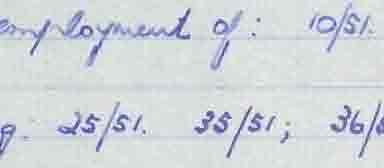 employment of: 10/51.
g. 25/51. 35/51; 36/